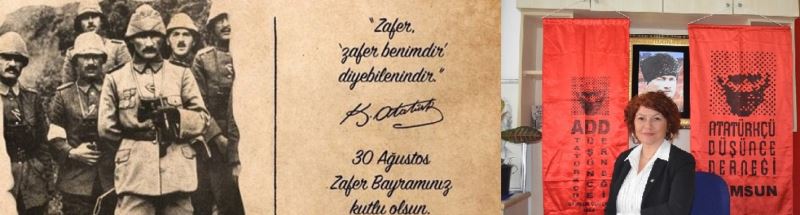 “Zafer,
‘zafer benimdir’
diyebilenindir.”
K. Atatürk
30 Ağustos
Zafer Bayramınız
kutlu olsun.
ADD
ATATÜRKÇÜ
DÜŞÜNCE
DERNEĞİ
ATATÜRKÇÜ
DÜŞÜNCE
DERNEĞİ
MSUN